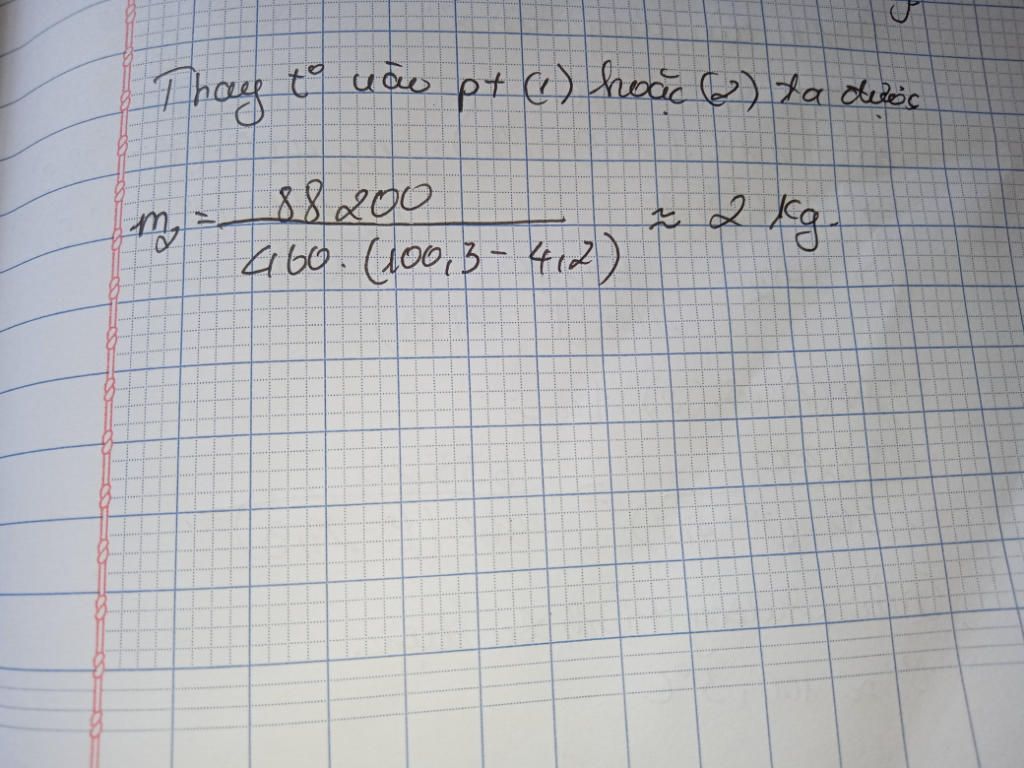 Thay t° vào pt (1) hoặc (2) ta được
m₂ = 88 200 / 460 . (100,3 - 4,2) ≈ 2 Kg.